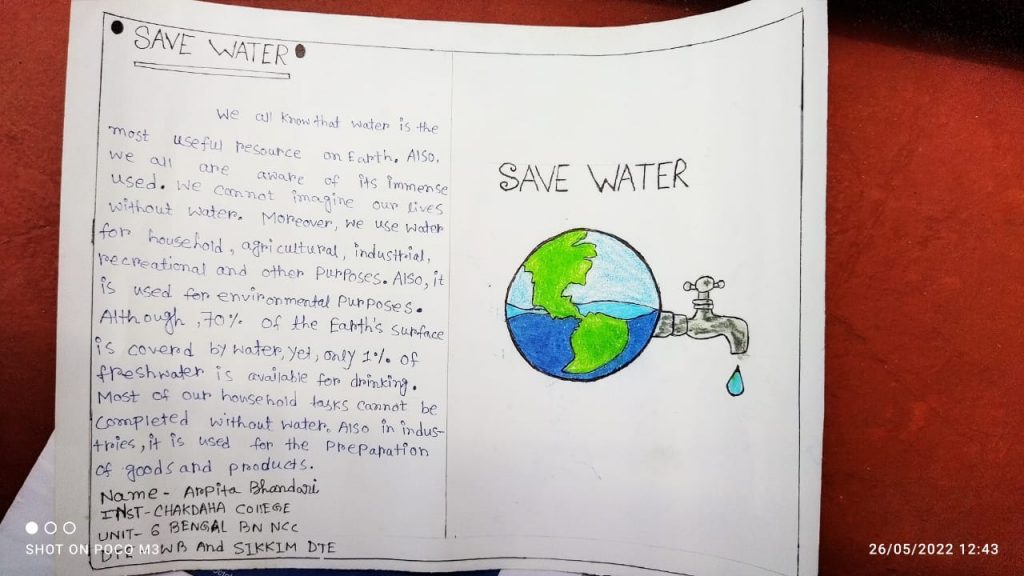 SAVE WATER
We all know that water is the
most useful resource on Earth. Also,
we all are aware of its immense
used. We cannot imagine our lives
without water. Moreover, we use water
for household, agricultural, industrial,
recreational and other purposes. Also, it
is used for environmental purposes.
Although, 70% of the Earth's surface
is covered by water, yet, only 1% of
freshwater is available for drinking.
Most of our household tasks cannot be
completed without water. Also in indus-
tries, it is used for the preparation
of goods and products.
Name - Arpita Bhandari
INST - CHAKDAHA COllEGE
UNIT - 6 BENGAL BN NCC
WB And SIKKIM DTE
SAVE WATER
SHOT ON POCO M3
26/05/2022 12:43